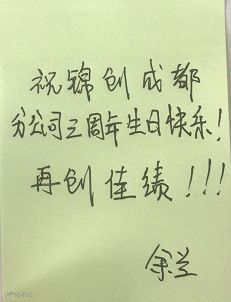 祝锦创成都
分公司三周年生日快乐!
再创佳绩!!!
余兰